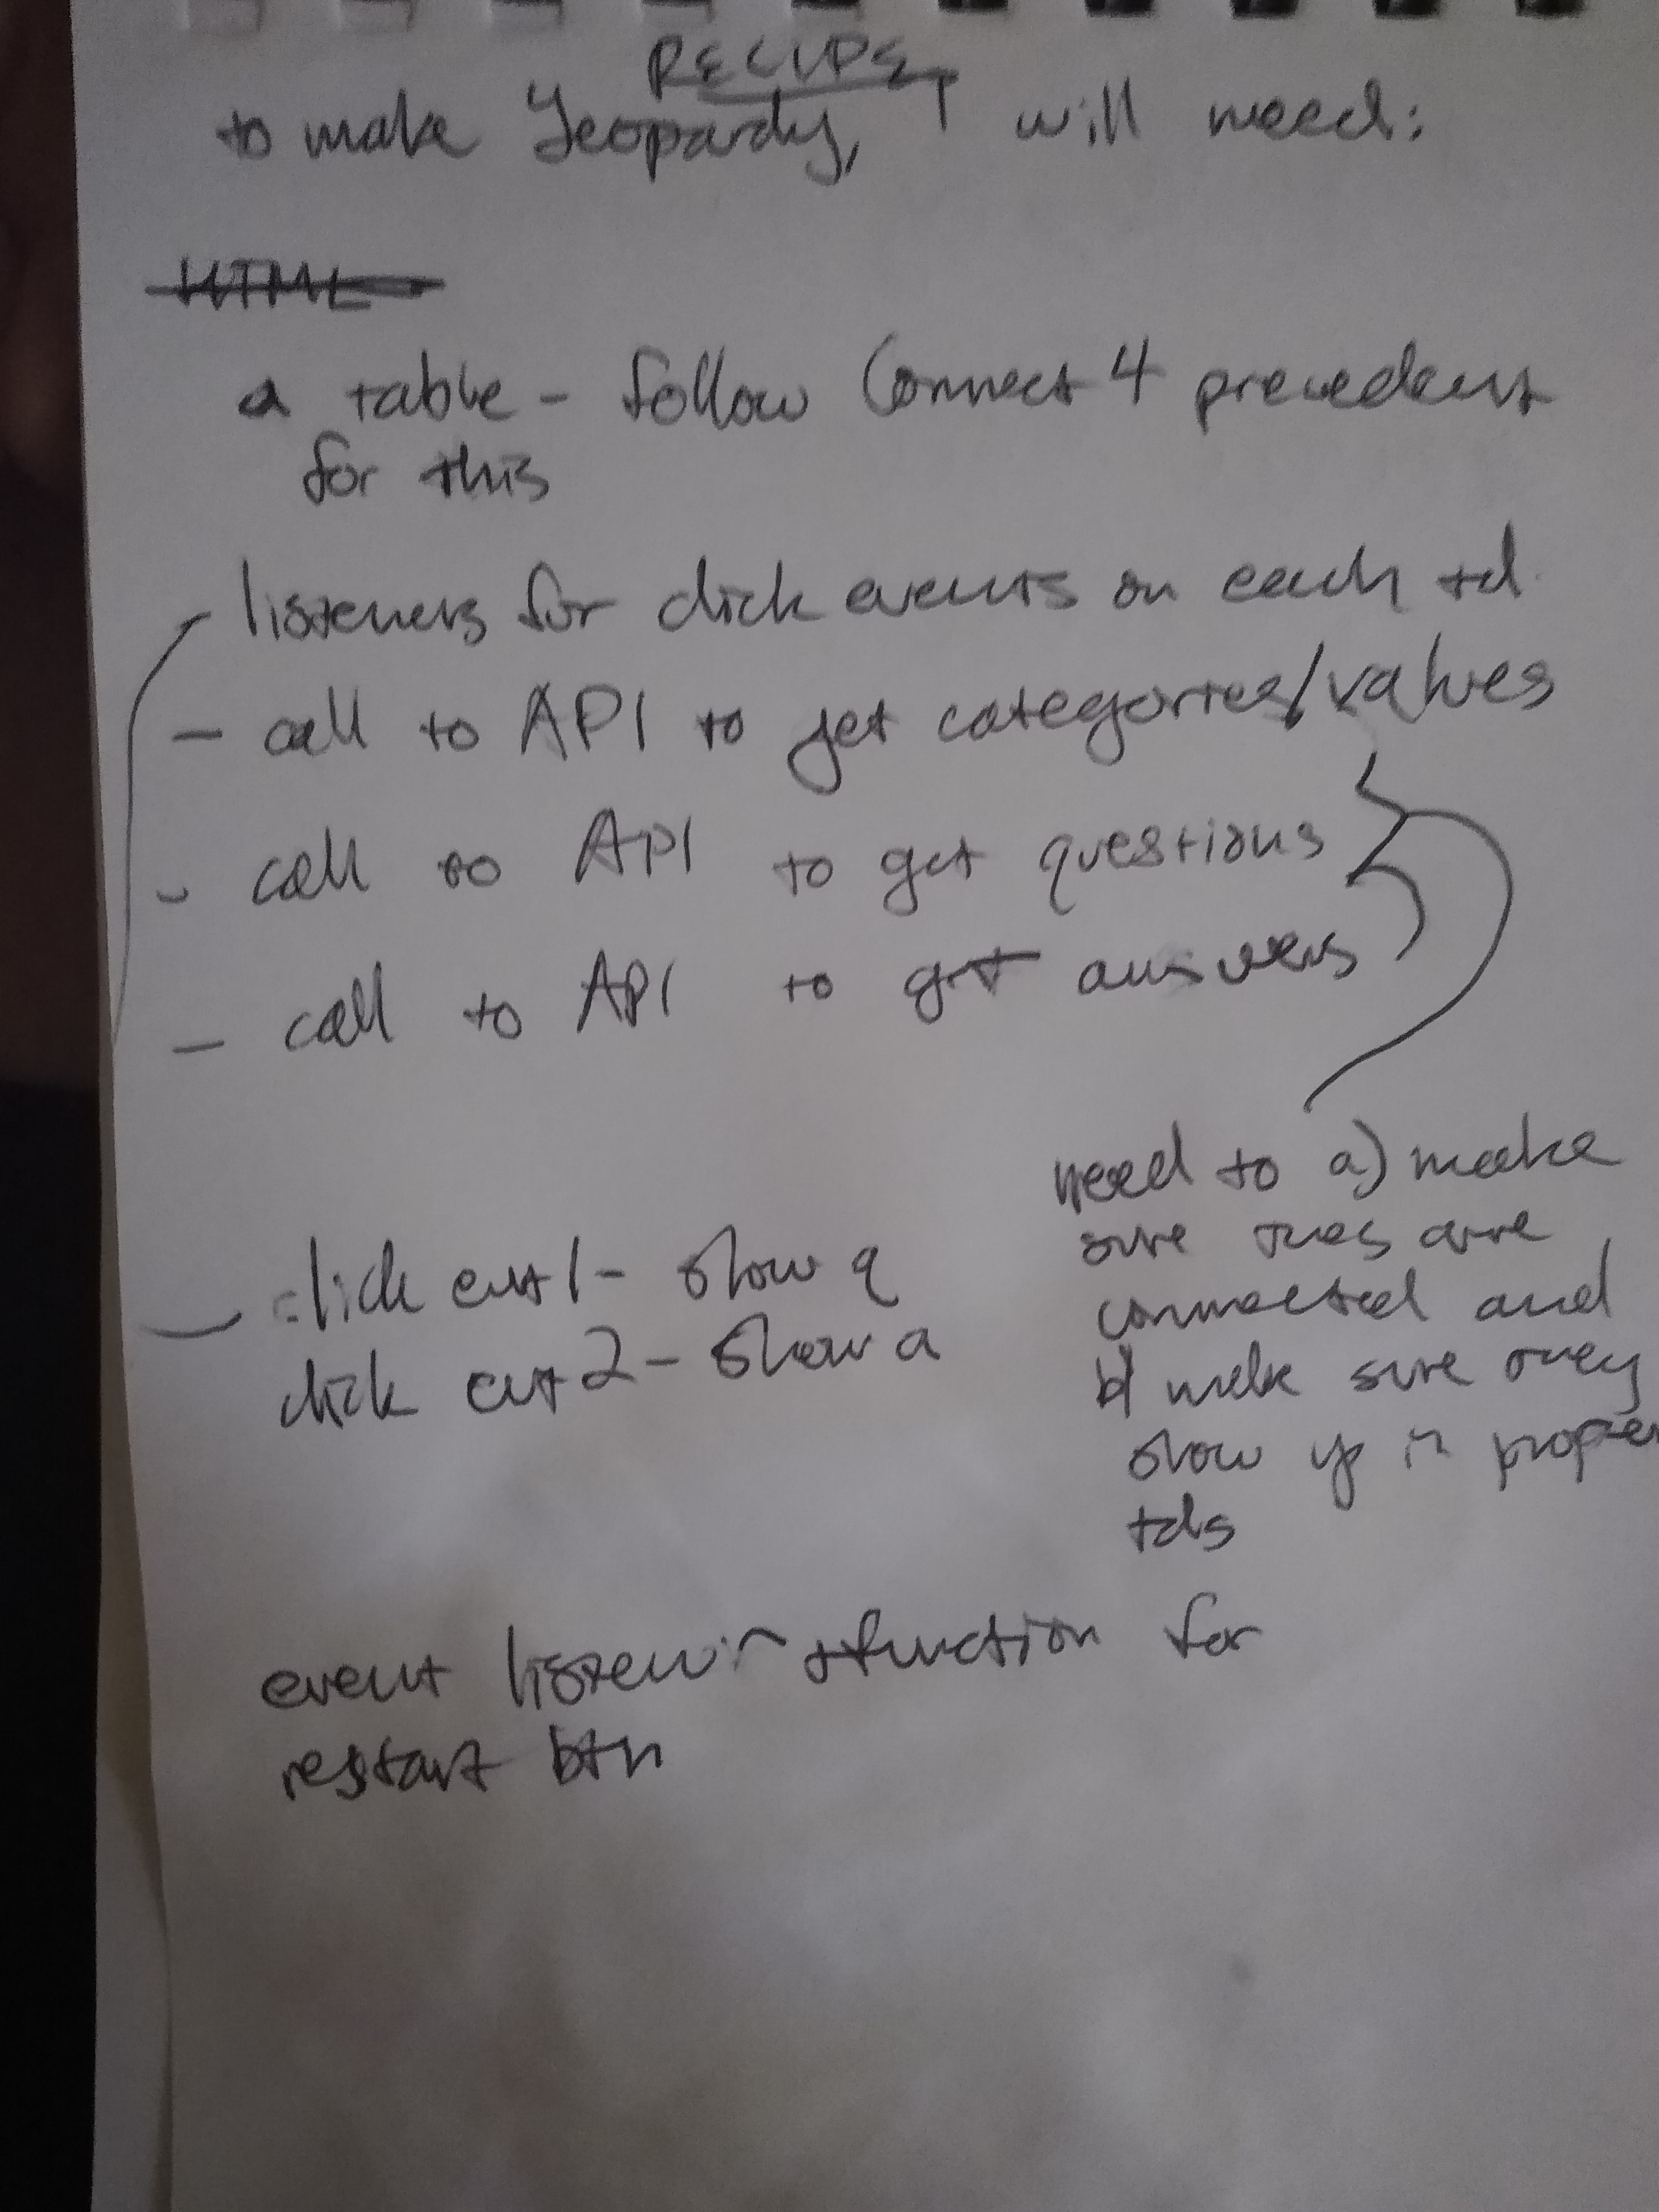 RECIPE
to make Jeopardy, I will need:
HTML
a table - follow Connect 4 precedent
for this
listeners for click events on each td
- call to API to get categories/values
- call to API to get questions
- call to API to get answers
need to a) make
sure these are
connected and
b) make sure they
show up in proper
tds
- click evt 1 - show q
click evt 2 - show a
event listener + function for
restart btn